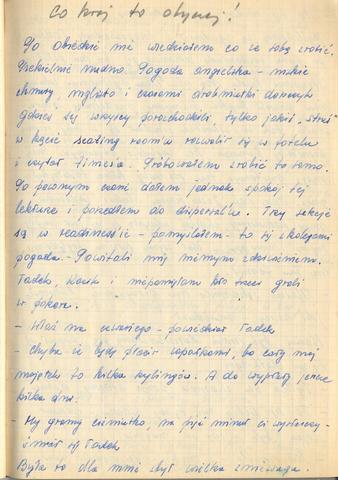 Co kraj to obyczaj!
Po obiedzie nie wiedziałem co ze sobą zrobić.
Piekielnie nudno. Pogoda angielska – niskie
chmury, mglisto i czasami drobniutki deszczyk
gdzieś się wszyscy porozchodzili, tylko jakiś „stryś”
w kącie seating room'u rozwalił się w fotelu
i czytał Times'a. Próbowałem zrobić to samo.
Po pewnym czasie dałem jednak spokój tej
lekturze i poszedłem do dispersal'u. Trzy sekcje
są w readiness'ie – pomyślałem – to się z kolegami
pogada. – Powitali mię niemym zdziwieniem.
Tadek, Kazik i niepamiętam kto trzeci grali
w pokera.
– Właź na czwartego – powiedział Tadek
– Chyba że będę płacić zapałkami, bo cały mój
majątek to kilka szylingów. A do wypłaty jeszcze
kilka dni.
– My gramy cieniutko, na pięć minut ci wystarczy –
śmiał się Tadek
Była to dla mnie zbyt wielka zniewaga.